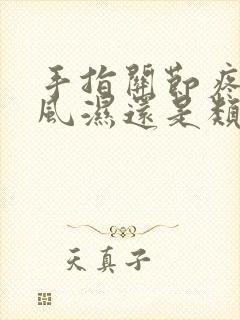 手指關節疼
風濕還是類
天真子